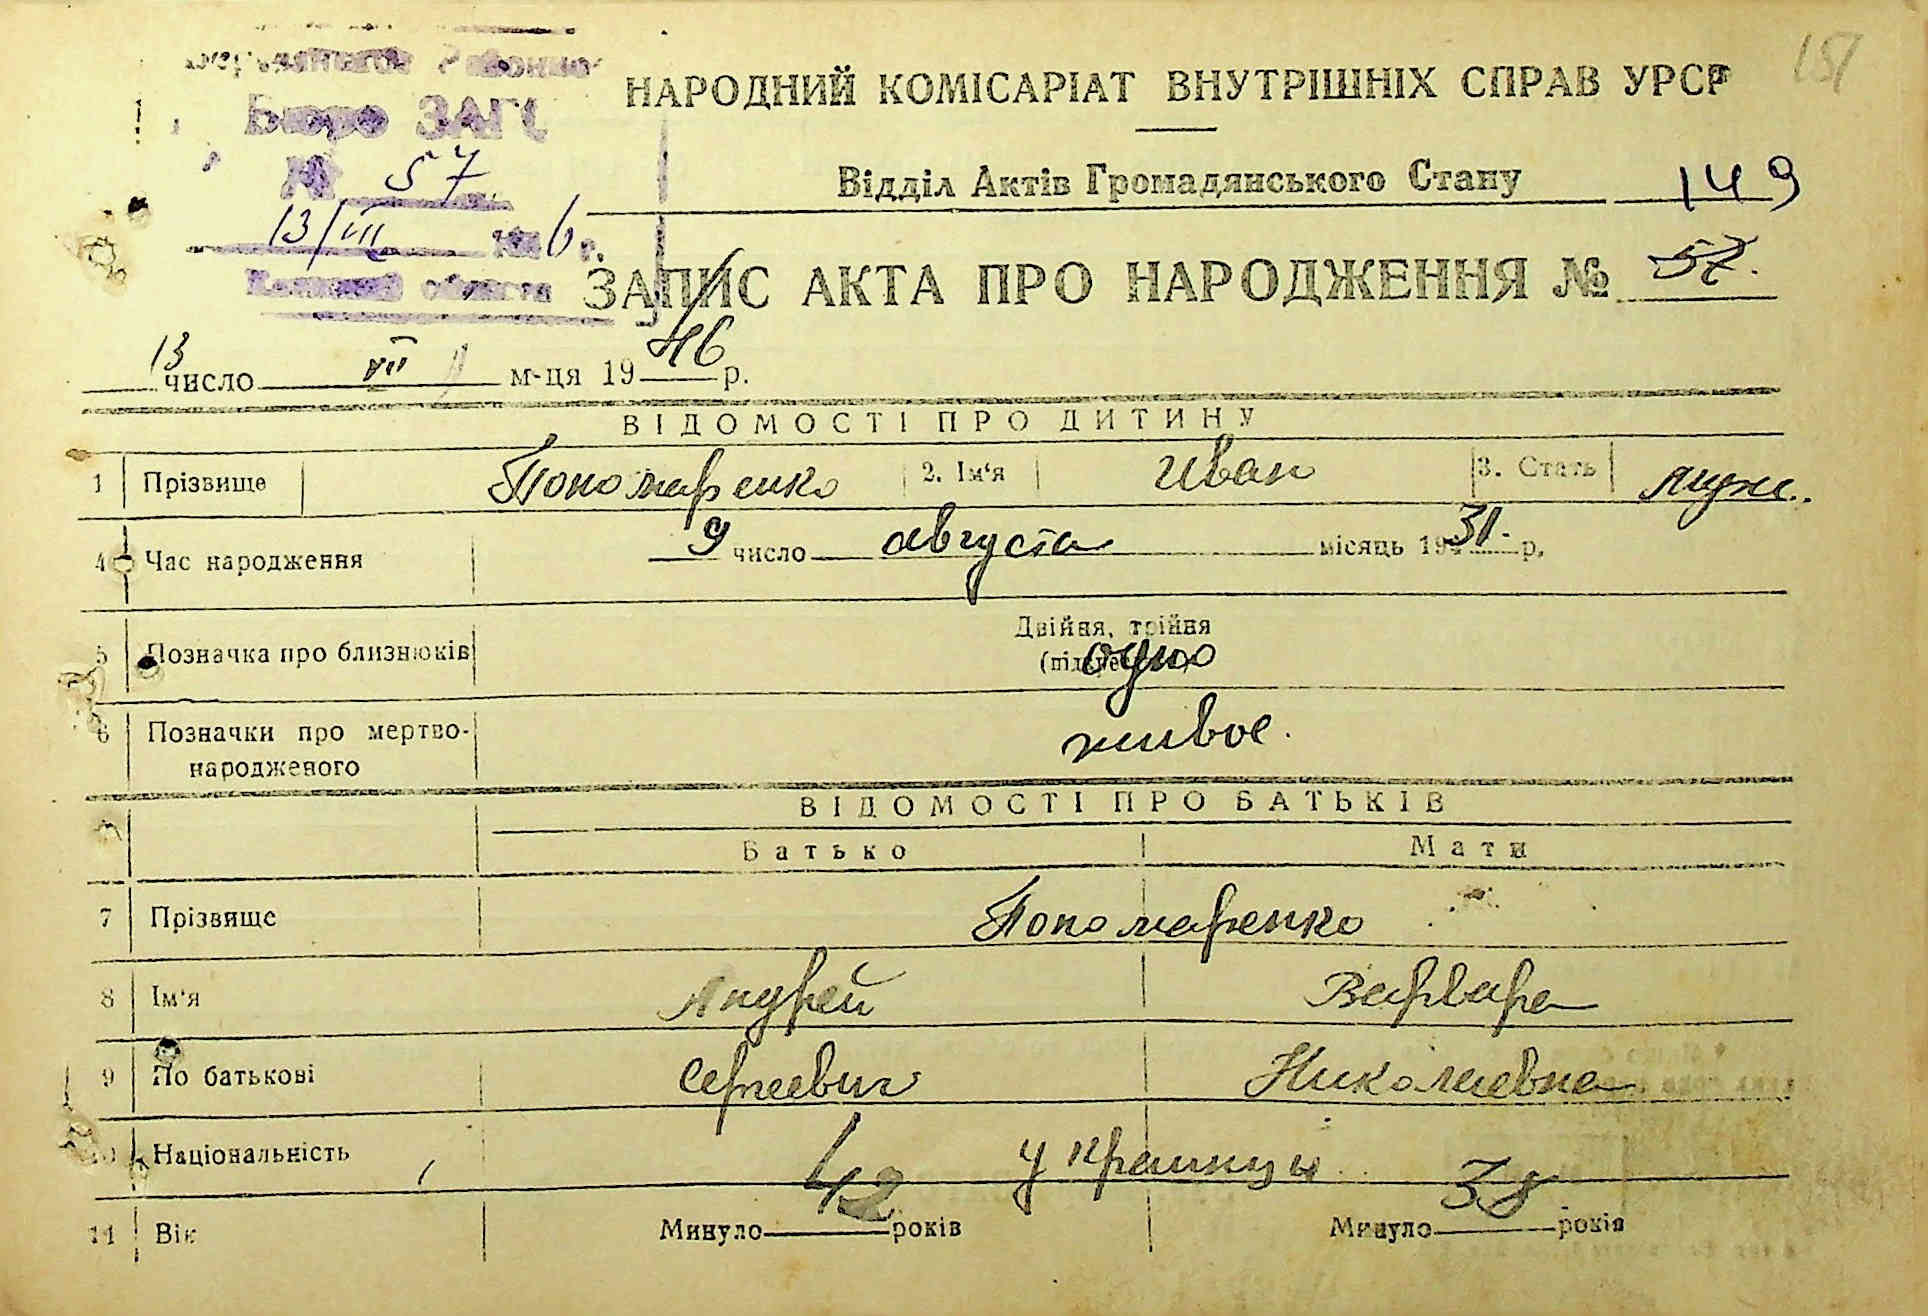 151
НАРОДНИЙ КОМІСАРІАТ ВНУТРІШНІХ СПРАВ УРСР
Бюро ЗАГС
№ 57
13/III 1946 р.
області
Відділ Актів Громадянського Стану 149
ЗАПИС АКТА ПРО НАРОДЖЕННЯ № 57.
13 число III м-ця 1946 р.
ВІДОМОСТІ ПРО ДИТИНУ
1 Прізвище Пономаренко 2. Ім'я Иван 3. Стать мужс.
4 Час народження 9 число августа місяць 1931. р.
5 Позначка про близнюків Двійня, трійня
(підкреслити) одно
6 Позначки про мертво-
народженого живое.
ВІДОМОСТІ ПРО БАТЬКІВ
Батько Мати
7 Прізвище Пономаренко
8 Ім'я Андрей Варвара
9 По батькові Сергеевич Николаевна
10 Національність украинцы
11 Вік Минуло 42 років Минуло 38 років